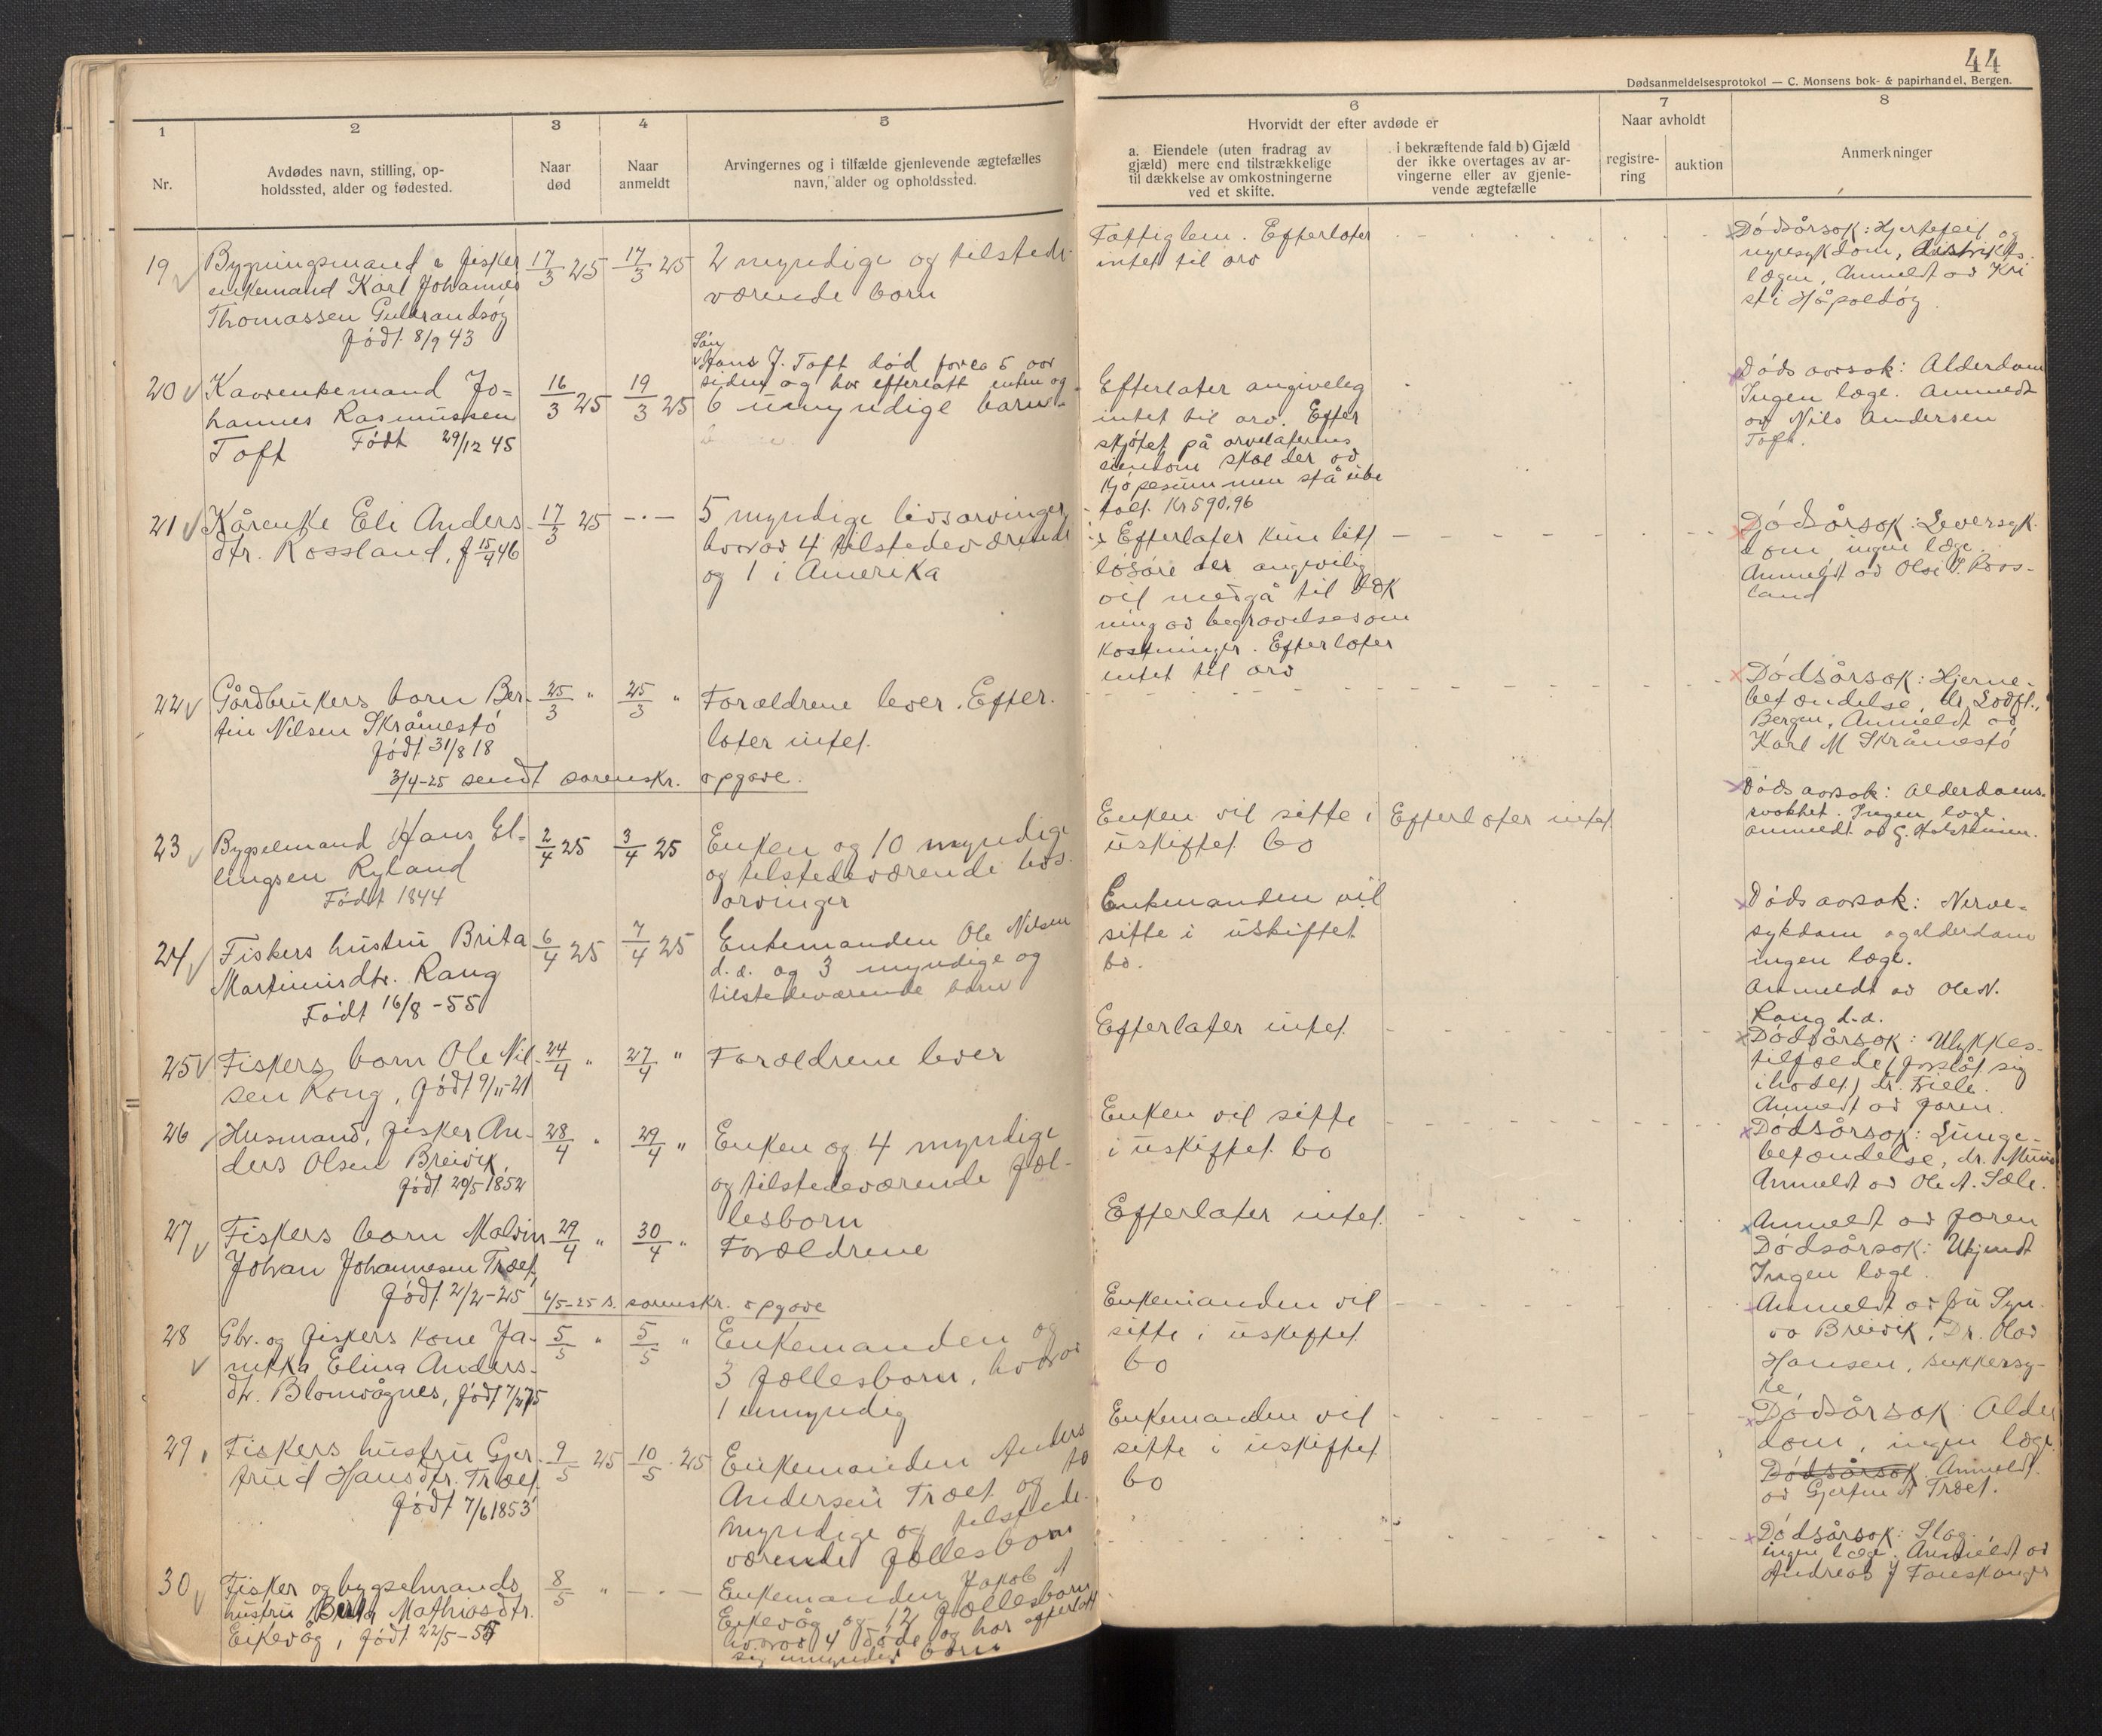 44
Dødsanmeldelsesprotokol — C. Monsens bok- & papirhandel, Bergen.
1
Nr.
2
Avdødes navn, stilling, op-
holdssted, alder og fødested.
3
Naar
død
4
Naar
anmeldt
5
Arvingernes og i tilfælde gjenlevende ægtefælles
navn, alder og opholdssted.
6
Hvorvidt der efter avdøde er
a. Eiendele (uten fradrag av
gjæld) mere end tilstrækkelige
til dækkelse av omkostningerne
ved et skifte.
i bekræftende fald b) Gjæld
der ikke overtages av ar-
vingerne eller av gjenle-
vende ægtefælle
7
Naar avholdt
registre-
ring
auktion
8
Anmerkninger
19
Bygningsmand & fisker
enkemand Karl Johannes
Thomassen Guldrandsøy
født 8/9 43
17/3 25
17/3 25
2 myndige og tilstede-
værende børn
Fattiglem. Efterlater
intet til arv
Dødsårsak: Hjertefeil og
nyresykdom, distrikts-
lægen, Anmeldt av Kri
sti Håpoldøy
20
Kaarenkemand Jo-
hannes Rasmussen
Toft Født 29/12 45
16/3 25
19/3 25
Søn
Hans J. Toft død for ca 5 aar
siden og har efterlatt enken og
6 umyndige barn.
Efterlater angivelig
intet til arv. Efter
skjøtet på arvelaterens
eiendom skal der av
kjøpesummen stå ube
talt kr 590,96
Dødsaarsak: Alderdom
Ingen læge. Anmeldt
av Nils Andersen
Toft.
21
Kårenke Eli Anders-
dtr. Rossland, f 15/4 46
17/3 25
— · —
5 myndige livsarvinger
hvorav 4 tilstedeværende
og 1 i Amerika
Efterlater kun litt
løsøre der angivelig
vil medgå til dæk
ning av begravelsesom
kostninger. Efterlater
intet til arv
Dødsårsak: Leversyk-
dom, ingen læge.
Anmeldt av Olai I. Ross-
land
22
Gårdbrukers barn Ber-
tin Nilsen Skråmestø
født 31/8 18
25/3 "
25/3 "
Forældrene lever. Efter-
later intet.
Dødsårsak: Hjerne-
betændelse, dr. Lodft.,
Bergen, Anmeldt av
Karl M Skråmestø
3/4-25 sendt sorenskr. opgave.
23
Bygselmand Hans El-
lingsen Ryland
Født 1844
2/4 25
3/4 25
Enken og 10 myndige
og tilstedeværende livs-
arvinger
Enken vil sitte i
uskiftet bo
Efterlater intet
Dødsaarsak: Alderdoms-
svakhet. Ingen læge.
anmeldt av G. Holstmann.
24
Fiskers hustru Brita
Martinusdtr. Rong
Født 16/8 -55
6/4 25
7/4 25
Enkemanden Ole Nilsen
d.a. og 3 myndige og
tilstedeværende barn
Enkemanden vil
sitte i uskiftet
bo.
Dødsaarsak: Nerve-
sykdom og alderdom
ingen læge.
Anmeldt av Ole N.
Rong d.a.
25
Fiskers barn Ole Nil-
sen Rong, født 9/11-21
24/4 "
27/4 "
Forældrene lever
Efterlater intet
Dødsårsak: Ulykkes-
tilfælde (forslåt sig
i hodet) dr. Friele.
Anmeldt av faren.
26
Husmand, fisker An-
ders Olsen Breivik,
født 20/5 1852
28/4 "
29/4 "
Enken og 4 myndige
og tilstedeværende fæl-
lesbarn
Enken vil sitte
i uskiftet bo
Dødsårsak: Lunge-
betændelse, dr. Munn
Anmeldt av Ole A. Sæle.
27
Fiskers barn Malvin
Johan Johannesen Træet,
født 2/2-25
29/4 "
30/4 "
Forældrene
Efterlater intet
Anmeldt av faren
Dødsårsak: Ukjendt
Ingen læge.
6/5-25 s. sorenskr. opgave
28
Gbr. og fiskers kone Ja-
nikka Elina Anders-
dtr. Blomvågnes, født 7/2 75
5/5 "
5/5 "
Enkemanden og
3 fællesbarn, hvorav
1 umyndig
Enkemanden vil
sitte i uskiftet
bo
Anmeldt av fru Syn-
va Breivik, Dr. Olav
Hansen, sukkersy-
ke
29
Fiskers hustru Gjer-
trud Hansdtr. Træet
født 7/6 1853
9/5 25
10/5 25
Enkemanden Anders
Andersen Træet og to
myndige og tilstede-
værende fællesbarn
Enkemanden vil
sitte i uskiftet
bo
Dødsårsak Alder
dom, ingen læge.
Dødsårsak. Anmeldt
av Gjertine A Træet.
30
Fisker og bygselmands
hustru Berta Mathiasdtr.
Eikevåg, født 22/5-55
8/5 "
— · —
Enkemanden Jakob A
Eikevåg og 12 fællesbarn
hvorav 4 døde og har efterlatt
sig umyndige barn
Dødsårsak: Slag.
ingen læge. Anmeldt av
Andreas J Fauskanger